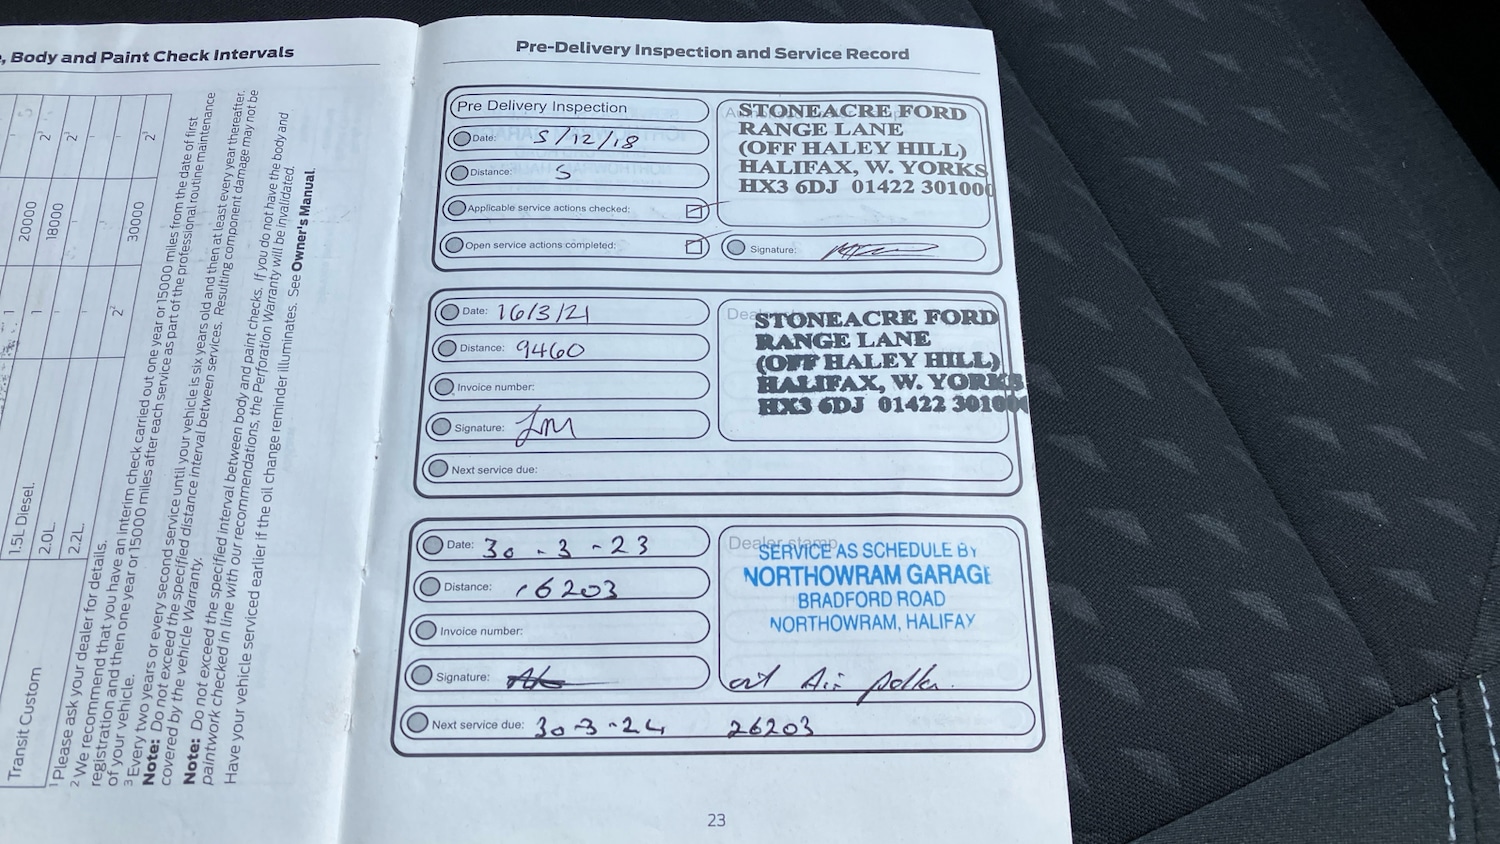 , Body and Paint Check Intervals
1
-
2¹
20000
1
18000
2¹
2.2L.
-
-
30000
2¹
2²
1.5L Diesel.
2.0L
Transit Custom
¹ Please ask your dealer for details.
² We recommend that you have an interim check carried out one year or 15000 miles from the date of first
registration and then one year or 15000 miles after each service as part of the professional routine maintenance
of your vehicle.
³ Every two years or every second service until your vehicle is six years old and then at least every year thereafter.
Note: Do not exceed the specified distance interval between services. Resulting component damage may not be
covered by the vehicle Warranty.
Note: Do not exceed the specified interval between body and paint checks. If you do not have the body and
paintwork checked in line with our recommendations, the Perforation Warranty will be invalidated.
Have your vehicle serviced earlier if the oil change reminder illuminates. See Owner's Manual.
Pre-Delivery Inspection and Service Record
Pre Delivery Inspection
Date: 5/12/18
Distance: 5
Applicable service actions checked:
Open service actions completed:
STONEACRE FORD
RANGE LANE
(OFF HALEY HILL)
HALIFAX, W. YORKS
HX3 6DJ 01422 301000
Signature:
Date: 16/3/21
Distance: 9460
Invoice number:
Signature:
Next service due:
STONEACRE FORD
RANGE LANE
(OFF HALEY HILL)
HALIFAX, W. YORKS
HX3 6DJ 01422 301000
Date: 30-3-23
Distance: 16203
Invoice number:
Signature:
Dealer stamp
SERVICE AS SCHEDULE BY
NORTHOWRAM GARAGE
BRADFORD ROAD
NORTHOWRAM, HALIFAX
oil Air pollen.
Next service due: 30-3-24 26203
23